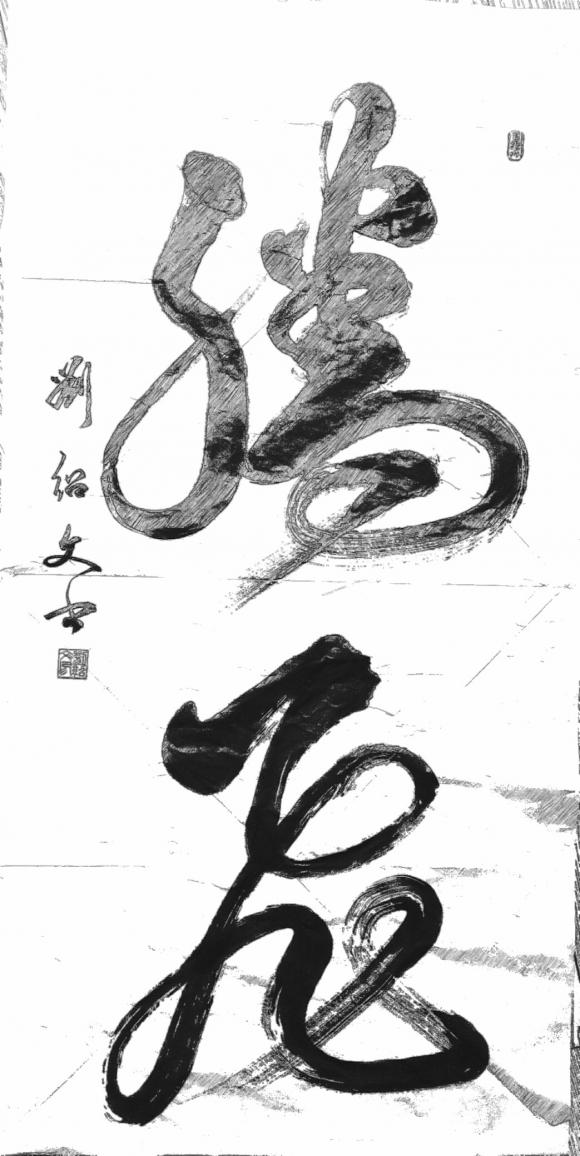 腾飞
刘绍文书